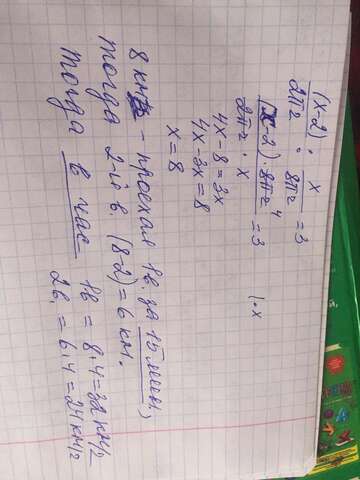 (x-2)/2πr : x/8πr = 3
(x-2)·8πr⁴/2πr·x = 3 | ·x
4x-8=3x
4x-3x=8
x=8
8 км - проехал 1в. за 15 мин.,
тогда 2-й в. (8-2)=6 км.
Тогда в час 1в = 8·4=32 км/ч
2в. = 6·4=24 км/ч